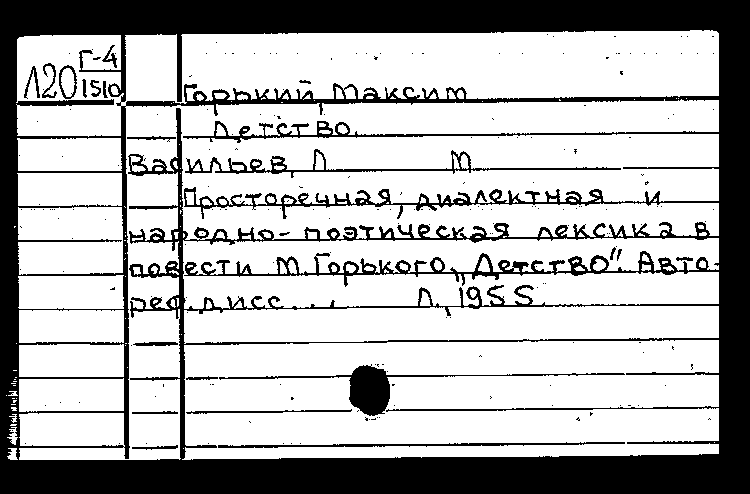 Г-4
120 1510
Горький, Максим
Детство.
Васильев, Л М
Просторечная, диалектная и
народно-поэтическая лексика в
повести М. Горького „Детство". Авто-
реф.дисс... Л., 1955.